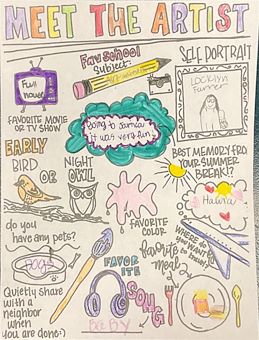 MEET THE ARTIST
Fav school
Subject:
SELF PORTRAIT
Full
House
FAVORITE MOVIE
OR TV SHOW
Going to
it was very fun
EARLY
BIRD
OR
NIGHT
OWL
BEST MEMORY FRO
YOUR SUMMER
BREAK!?
do you
have any pets?
DOGS
FAVORITE
COLOR
WHERE do
you WANT
to travel?
FAVOR
ITE
SONG
favorite
meal
Quietly share
with a
neighbor
when
you are done:)